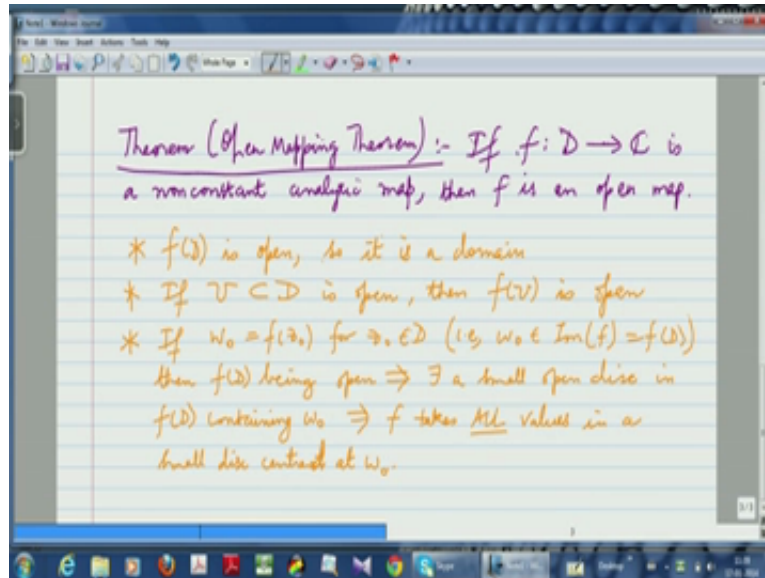 Note1 - Windows Journal
File Edit View Insert Actions Tools Help
Whole Page
Theorem (Open Mapping Theorem) :- If f : D → ℂ is
a nonconstant analytic map, then f is an open map.
* f(D) is open, so it is a domain
* If V ⊂ D is open, then f(V) is open
* If w₀ = f(z₀) for z₀ ∈ D (i.e, w₀ ∈ Im(f) = f(D))
then f(D) being open ⇒ ∃ a small open disc in
f(D) containing w₀ ⇒ f takes ALL values in a
small disc centred at w₀.
3/3
Skype
Desktop